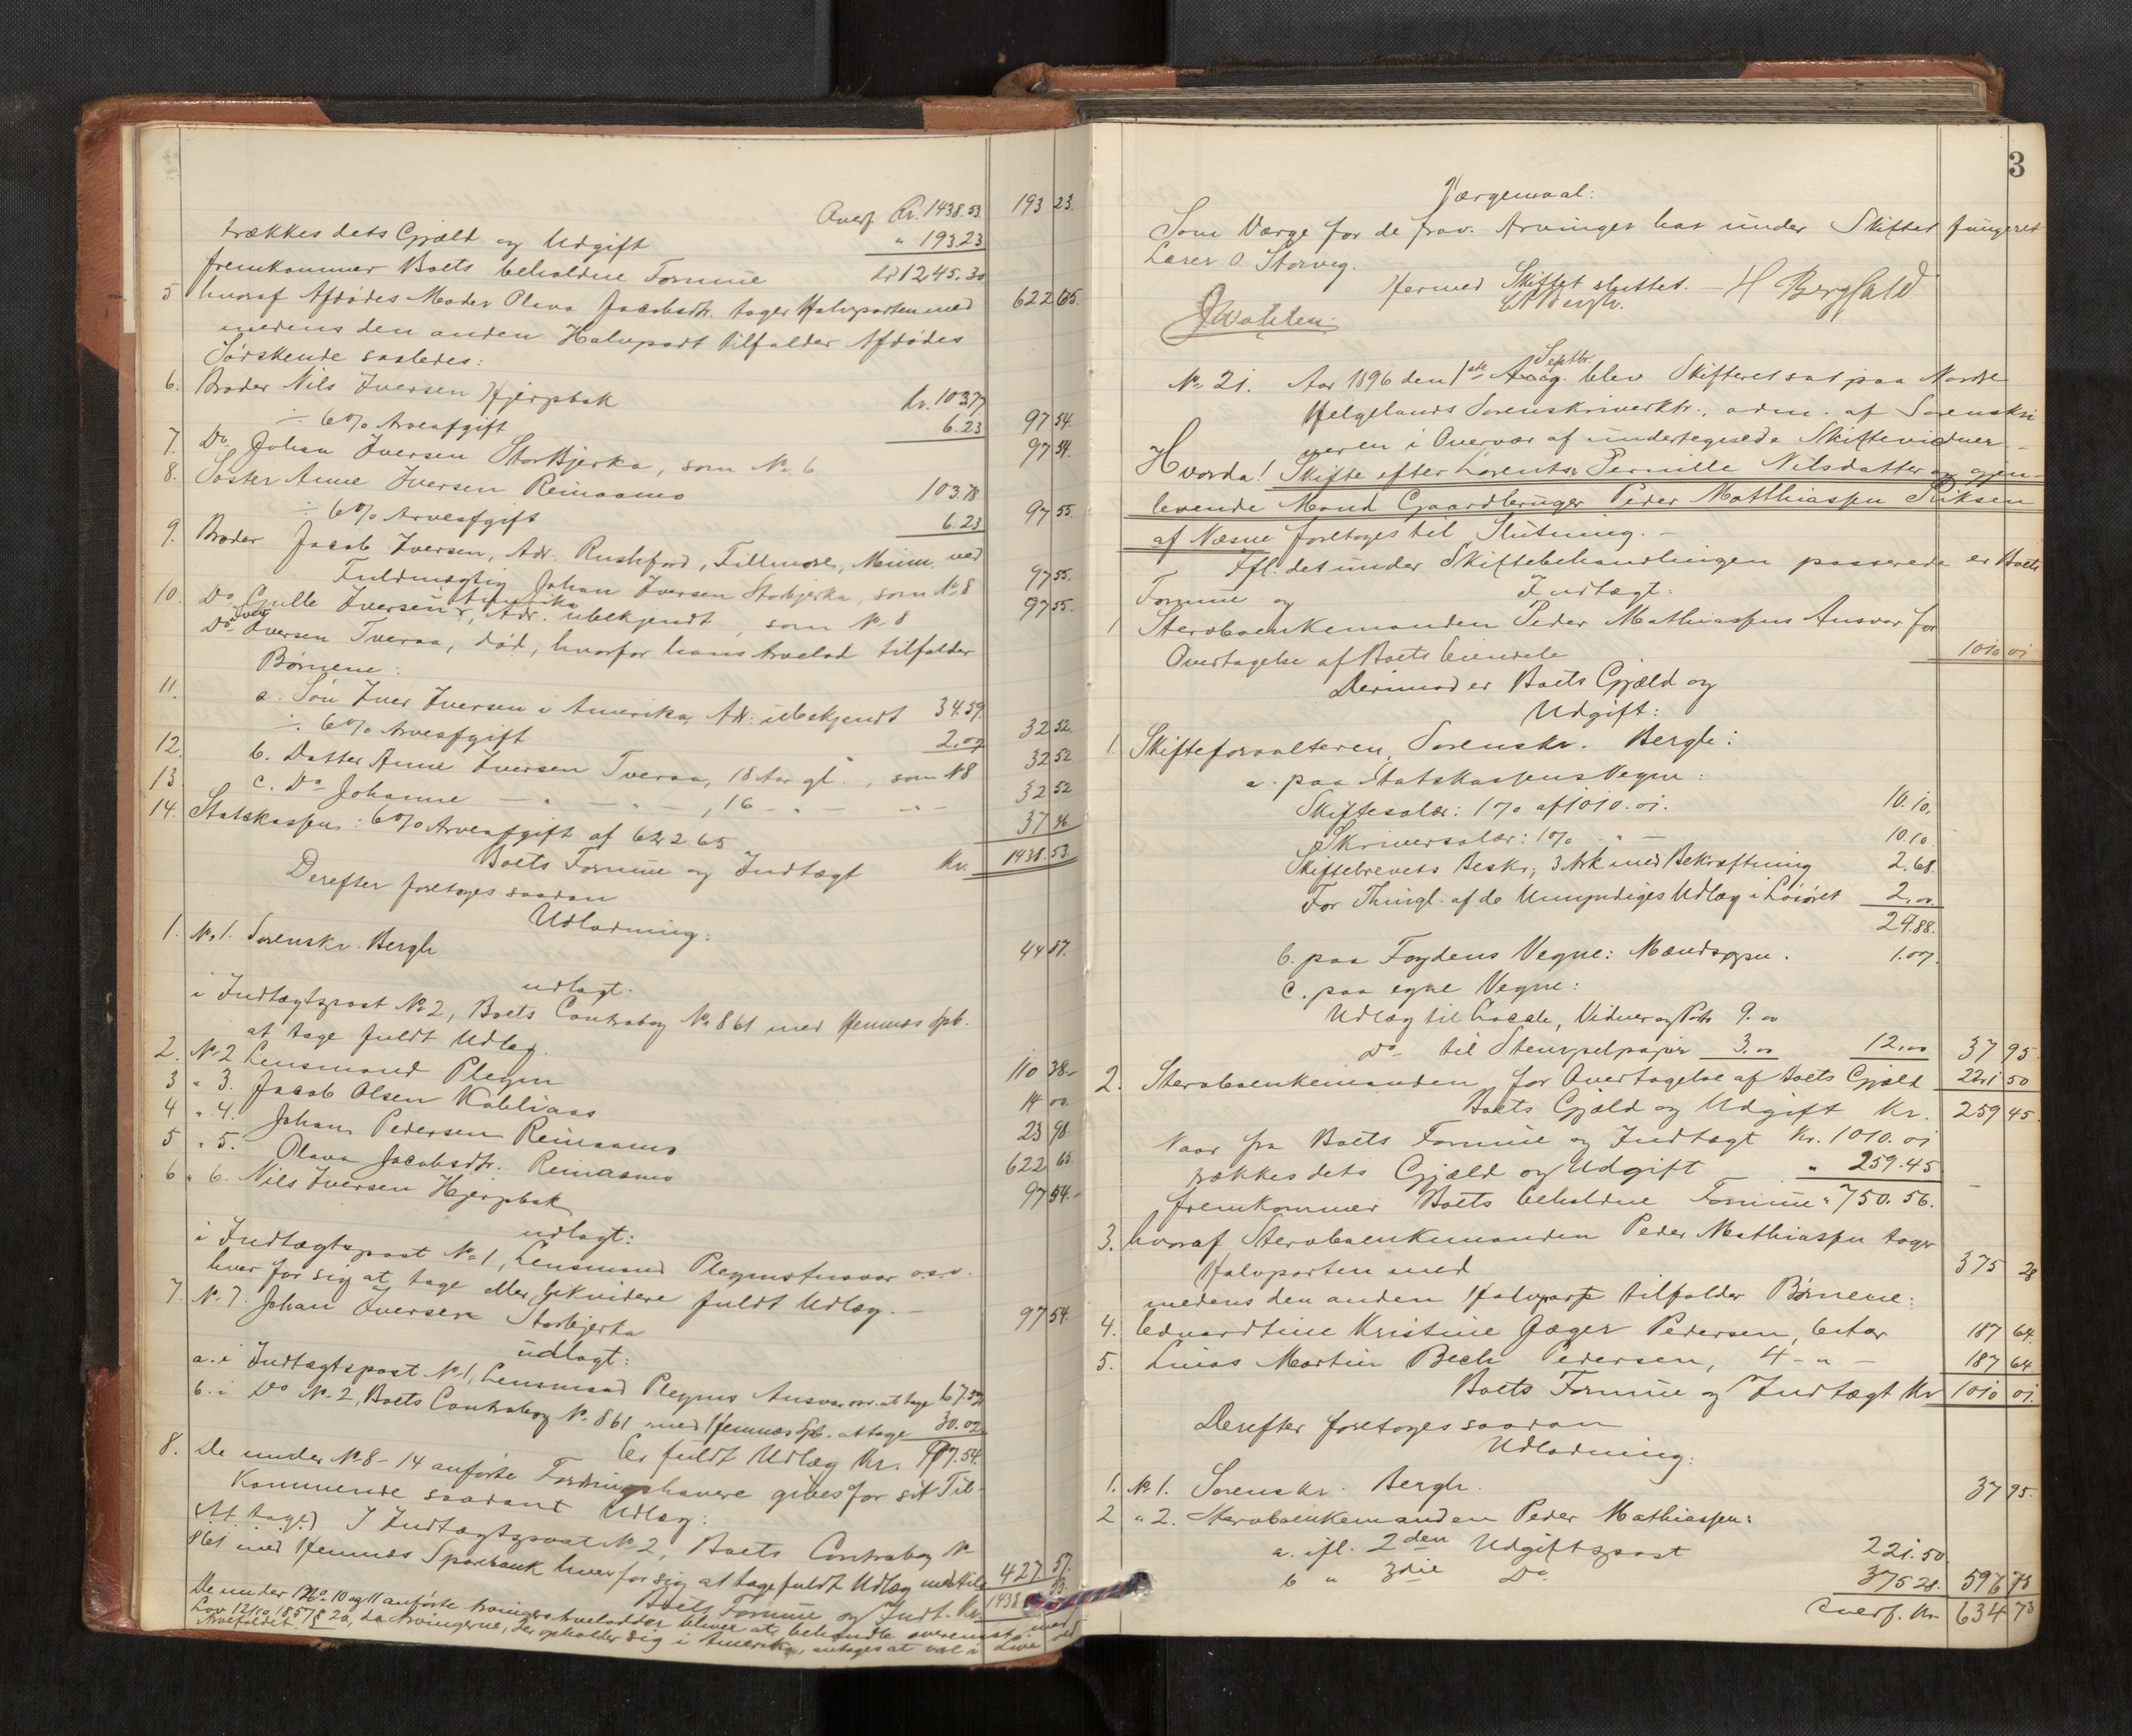 Overf. Kr. 1438.53. 193 23.
trækkes dets Gjæld og Udgift " 193.23
fremkommer Boets beholdne Formue kr 1245.30
5 hvoraf Afdødes Moder Olava Jacobsdtr. tager Halvparten med 622 65.
medens den anden Halvpart tilfalder Afdødes
Sødskende saaledes:
6. Broder Nils Iversen Hjerpbak kr. 103.77
÷ 6% Arveafgift 6.23 97 54.
7. Do. Johan Iversen Storbjerka, som No 6 97 54.
8. Søster Anne Iversen Reinaamo 103.78
÷ 6% Arveafgift 6.23 97 55.
9. Broder Jacob Iversen, Adr. Rushford, Fillmore, Minn. ved
Fuldmægtig Johan Iversen Storbjerka, som No 8 97 55.
10. Do Gulle Iversen i Amerika, Adr. ubekjendt, som No 8 97 55.
Do Iver Iversen Tveraa, død, hvorfor hans Arvelod tilfalder
Børnene:
11. a. Søn Iver Iversen i Amerika, Adr. ubekjendt 34.59.
÷ 6% Arveafgift 2.07 32 52.
12. b. Datter Anne Iversen Tveraa, 18 Aar gl., som No 8 32 52
13. c. Do Johanne — " — " —, 16 — " — " — 32 52
14. Statskassen: 6% Arveafgift af 622.65 37 36.
Boets Formue og Indtægt Kr. 1438.53.
Derefter foretoges saadan
Udlodning:
1. No 1. Sorenskr. Bergh 44 87.
udlagt:
i Indtægtspost No 2, Boets Contrabog No 861 med Hemnæs Spb.
at tage fuldt Udlæg.
2. No 2 Lensmand Plegm 110 38.-
3 " 3. Jacob Olsen Kobliaas 14 00.
4 " 4. Johan Pedersen Reinaamo 23 98
5 " 5. Olava Jacobsdtr. Reinaamo 622 65
6 " 6. Nils Iversen Hjerpbak 97 54.-
udlagt:
i Indtægtspost No 1, Lensmand Plegms Ansvar o.s.v.
hver for sig at tage eller likvidere fuldt Udlæg. -
7. No 7. Johan Iversen Storbjerka 97 54.
udlagt:
a. i Indtægtspost No 1, Lensmand Plegms Ansvar osv. at tage 67.52
b. i Do No 2, Boets Contrabog No 861 med Hemnæs Spb. at tage 30.02
Er fuldt Udlæg Kr. 97.54.
8. De under No 8-14 anførte Fordringshavere gives for sit Til-
kommende saadant Udlæg:
(At tage) I Indtægtspost No 2, Boets Contrabog No
861 med Hemnæs Sparebank hver for sig at tage fuldt Udlæg med tils. 427 57.
Boets Formue og Indt. Kr. 1438 53.
De under No 10 og 11 anførte Arvingers Arvelodder bliver at behandle overensst. med
Lov 12/10 1857 § 20, da Arvingerne, der opholder sig i Amerika, antages at være i Live ved
Arvefaldet.
3
Værgemaal:
Som Værge for de frav. Arvinger har under Skiftet fungeret
Lærer O. Storveg.
Hermed Skiftet sluttet. - H Bergfald
C Bergh.
No 21. Aar 1896 den 1ste Aug. Septbr. blev Skifteret sat paa Nordre
Helgelands Sorenskriverktr., adm. af Sorenskri
veren i Overvær af undertegnede Skiftevidner -
Hvorda! Skifte efter Lorentze Pernille Nilsdatter og gjen-
levende Mand Gaardbruger Peder Matthiassen Riksen
af Næsne foretoges til Slutning. -
Ifl. det under Skiftebehandlingen passerede er Boets
Formue og Indtægt:
1 Stervboenkemanden Peder Mathiassens Ansvar for
Overtagelse af Boets Eiendele 1010 01
Derimod er Boets Gjæld og
Udgift:
1 Skifteforvalteren, Sorenskr. Bergh:
a. paa Statskassens Vegne:
Skiftesalær: 1% af 1010.01. 10.10.
Skriversalær: 1% - " - 10.10.
Skiftebrevets Beskr., 3 Ark med Bekræftning 2.68.
For Thingl. af de Umyndiges Udlæg i Løsøret 2.00
24.88.
b. paa Fogdens Vegne: Mandspgn. 1.07.
c. paa egne Vegne:
Udlæg til Locale, Vidner og Porto 9.00
Do til Stempelpapir 3.00 12.00 37 95.
2. Stervboenkemanden for Overtagelse af Boets Gjæld 221 50
Boets Gjæld og Udgift Kr. 259 45.
Naar fra Boets Formue og Indtægt Kr. 1010.01
trækkes dets Gjæld og Udgift " 259.45
fremkommer Boets beholdne Formue " 750.56.
3. hvoraf Stervboenkemanden Peder Mathiassen tager
Halvparten med 375 28
medens den anden Halvpart tilfalder Børnene:
4. Eduardtine Kristine Jæger Pedersen, 6 Aar 187 64.
5. Linas Martin Bech Pedersen, 4 - " - 187 64
Boets Formue og Indtægt Kr 1010 01.
Derefter foretoges saadan
Udlodning:
1. No 1. Sorenskr. Bergh. 37 95.
2 " 2. Stervboenkemanden Peder Mathiassen:
a. ifl. 2den Udgiftspost 221.50
b " 3die Do 375 28. 596 78
Overf. Kr. 634 73